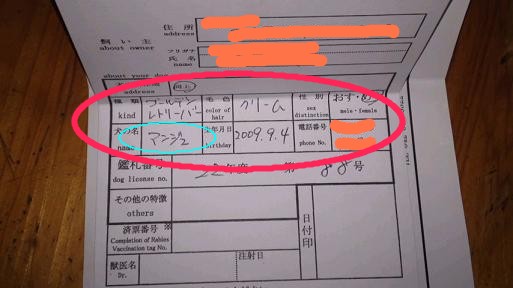 住所
address
飼い主
about owner
フリガナ
氏名
name
about your dog
address
同上
種類
kind
ゴールデン
レトリーバー
毛色
color of
hair
クリーム
性別
sex
distinction
おす・めす
male・female
犬の名
name
アンジュ
生年月日
birthday
2009.9.4
電話番号
phone No.
鑑札番号
dog license no.
22年度 第 88号
その他の特徴
others
済票番号※
Completion of Rabies
Vaccination tag No.
日付印
獣医名
Dr.
注射日